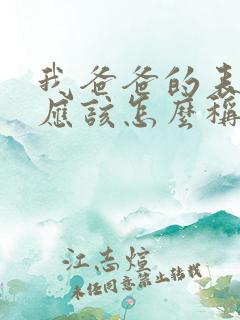 我爸爸的表
应该怎么称
江志煊
未经同意禁止转载